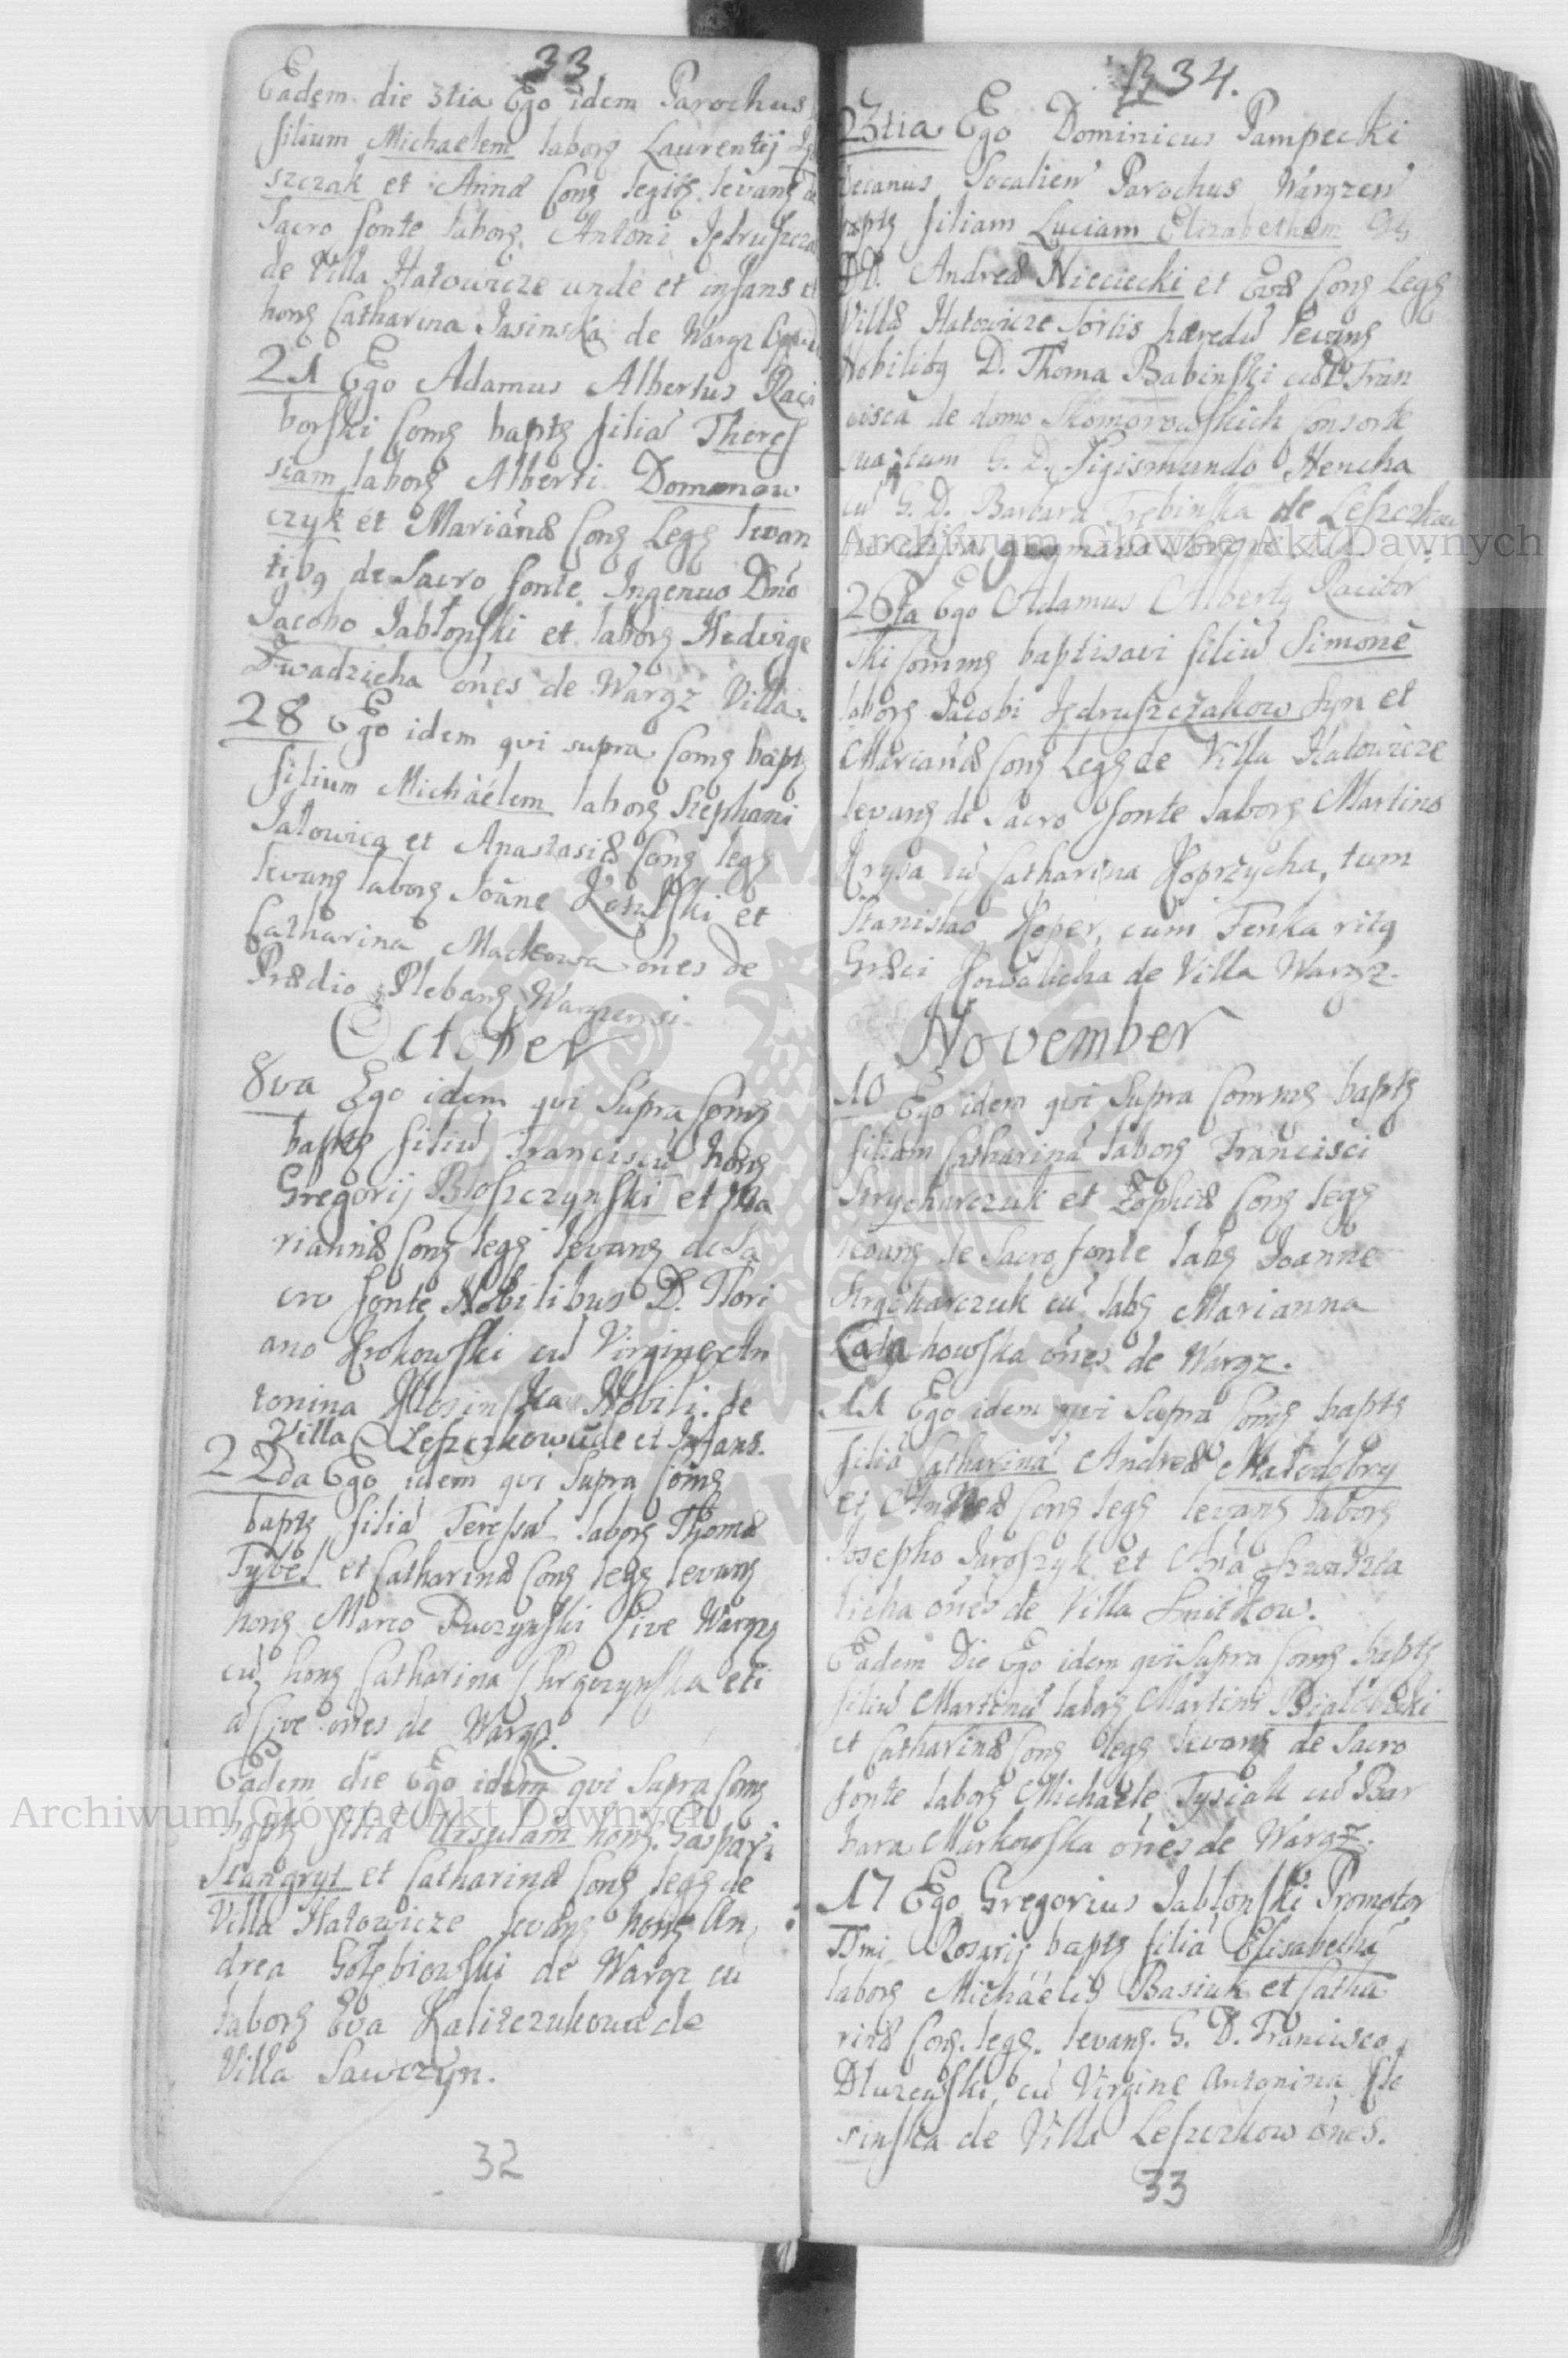 33
Eadem die 3tia Ego idem Parochus
filium Michaelem laborg Laurentij
szczak et Annæ Cong legitg levang de
Sacro fonte laborg. Antoni Jędruszcza
de Villa Hatowicze unde et infans et
hong Catharina Jasinska de Wargz
21 Ego Adamus Albertus Raci
borski Comg baptg filiã Theres
siam laborg Alberti Domanow
czyk et Mariãnæ Cong Legg levan
tibg de Sacro fonte Ingenuo Dnõ
Jacobo Jabłonski et laborg Hedvige
Dwadzicha oñes de Wargz Villa.
28 Ego idem qui supra Comg baptg
filium Michäélem laborg Stephani
Jatowica et Anastasiæ Cong legg
levang laborg Joãne et
Catharina Mackowa oñes de
Prædio Plebang Wargensi.
October
8va Ego idem qui Supra Comg
baptg filiũ Franciscũ hong
Gregorij Bloszczynski et Ma
riannæ Cong legg levang de Sa
cro fonte Nobilibus D. Flori
ano Krokowski cũ Virgine An
tonina Klosinska Nobili. de
Villa Leszczkow ũde et Infans.
22da Ego idem qui Supra Comg
baptg filiã Teressã laborg Thomæ
Tybel et Catharinæ Cong legg levang
hong Marco Puczynski Cive Wargg
cũ hong Catharina eti
ã Cive oñes de Wargz.
Eadem die Ego idem qui Supra Comg
baptg filiã Ursulam hong. Gaspari
Stangryt et Catharinæ Cong legg de
Villa Hatowicze levang hong An
drea Gołębiowski de Wargz cũ
laborg Eva Kaliszczukowa de
Villa Sawczyn.
32
34.
23tia Ego Dominicus Pampecki
Decanus Socalieñ Parochus Wargzeñ
baptg filiam Luciam Elizabetham
DD. Andreæ Nieciecki et Evæ Cong Legg
Villæ Hatowicze Sortis hæredũ levang
Nobilibg D. Thoma Babinski cũ D. Fran
cisca de domo Skomorowskich Consorte
sua, tum G. D. Sigismundo Hencha
cũ G. D. Barbara Trębinska de Leszczkow
26ta Ego Adamus Albertg Racibor
ski Commg baptisavi filiũ Simonẽ
laborg Jacobi Jędruszczakow Syn et
Mariãnæ Cong Legg de Villa Hatowicze
levang de Sacro fonte laborg Martino
Kryba cũ Catharina Koprzycha, tum
Stanislao Koper, cum Fenka ritg
Græci Kowalicha de Villa Wargz.
November
10 Ego idem qui Supra Commg baptg
filiam Catharinã laborg Francisci
Strycharczuk et Zophiæ Cong legg
levang de Sacro fonte labg Joanne
Strycharczuk cũ labg Marianna
oñes de Wargz.
11 Ego idem qui Supra Comg baptg
filiã Catharinã Andreæ Małodobry
et Cong legg levang laborg
Josepho Jaroszyk et Añã
licha oñes de Villa Smitkow.
Eadem Die Ego idem qui Supra Comg baptg
filiũ Martinũ laborg Martini Białobrzeki
et Catharinæ Cong legg levang de Sacro
fonte laborg Michaele Tysiak cũ Bar
bara Markowska oñes de Wargz.
17 Ego Gregorius Jablonski Promotor
SSmi Rosarij baptg filiã Elisabethã
laborg Michäélis Basiuk et Catha
rinæ Cong. legg. levang. G. D. Francisco
Dluzewski, cũ Virgine Antonina Klo
sinska de Villa Leszczkow oñes.
33
Archiwum Główne Akt Dawnych
Archiwum Główne Akt Dawnych